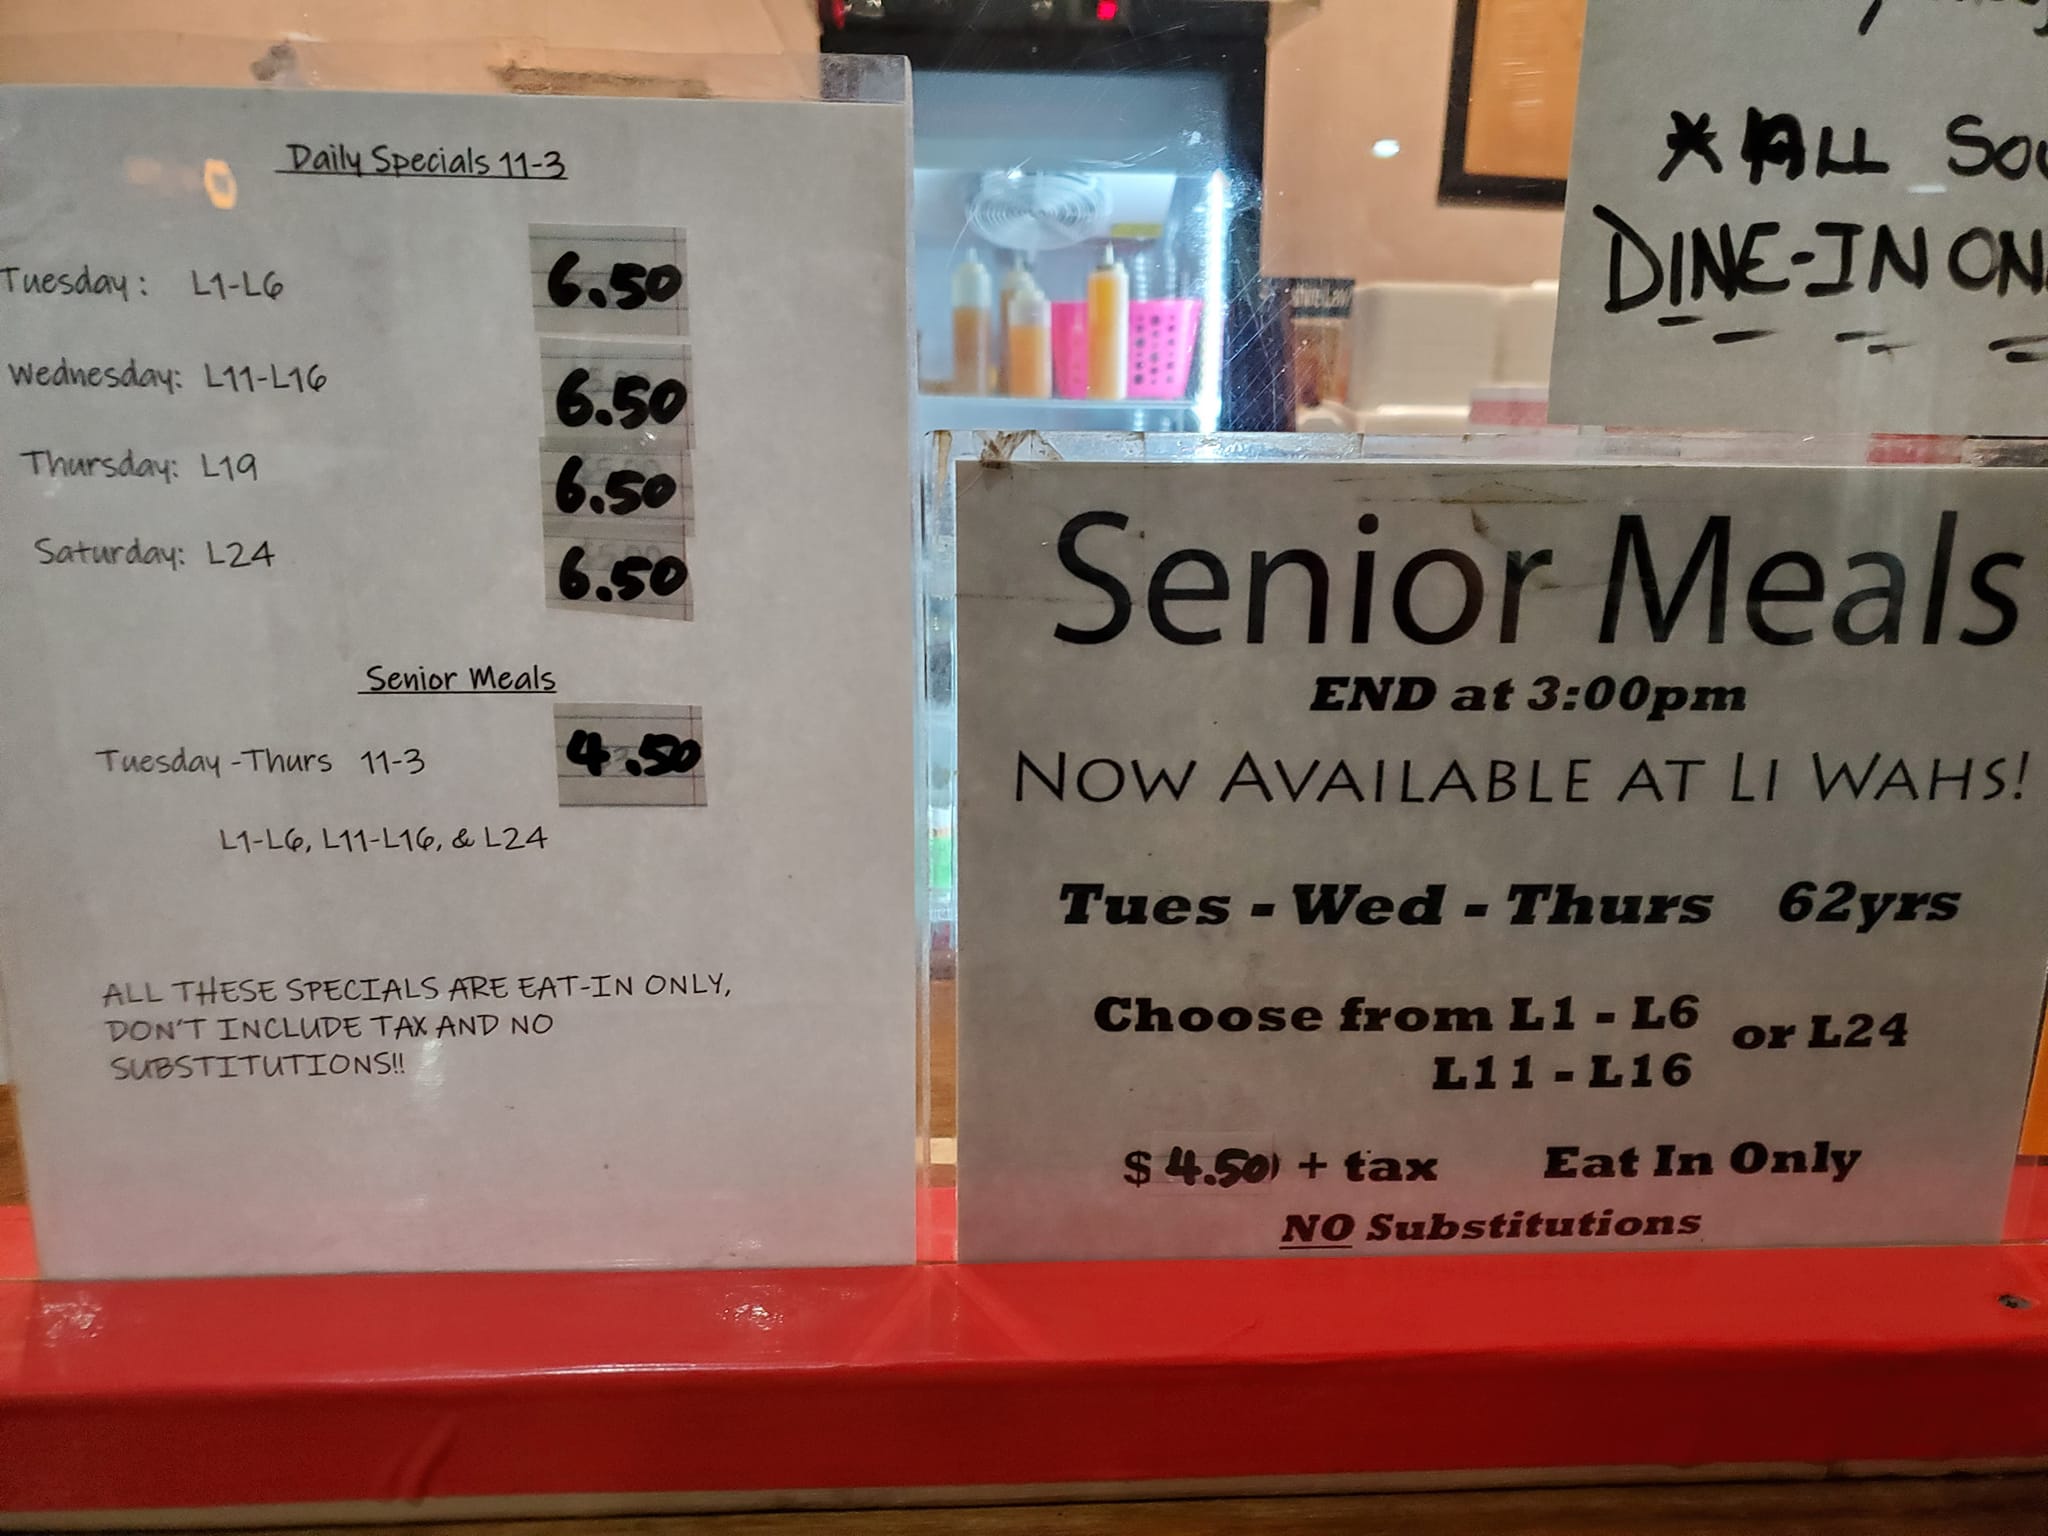 Daily Specials 11-3
Tuesday: L1-L6 6.50
Wednesday: L11-L16 6.50
Thursday: L19 6.50
Saturday: L24 6.50
Senior Meals
Tuesday-Thurs 11-3 4.50
L1-L6, L11-L16, & L24
ALL THESE SPECIALS ARE EAT-IN ONLY,
DON'T INCLUDE TAX AND NO
SUBSTITUTIONS!!
* ALL
DINE-IN
Senior Meals
END at 3:00pm
NOW AVAILABLE AT LI WAHS!
Tues - Wed - Thurs 62yrs
Choose from L1 - L6 or L24
L11 - L16
$ 4.50 + tax Eat In Only
NO Substitutions